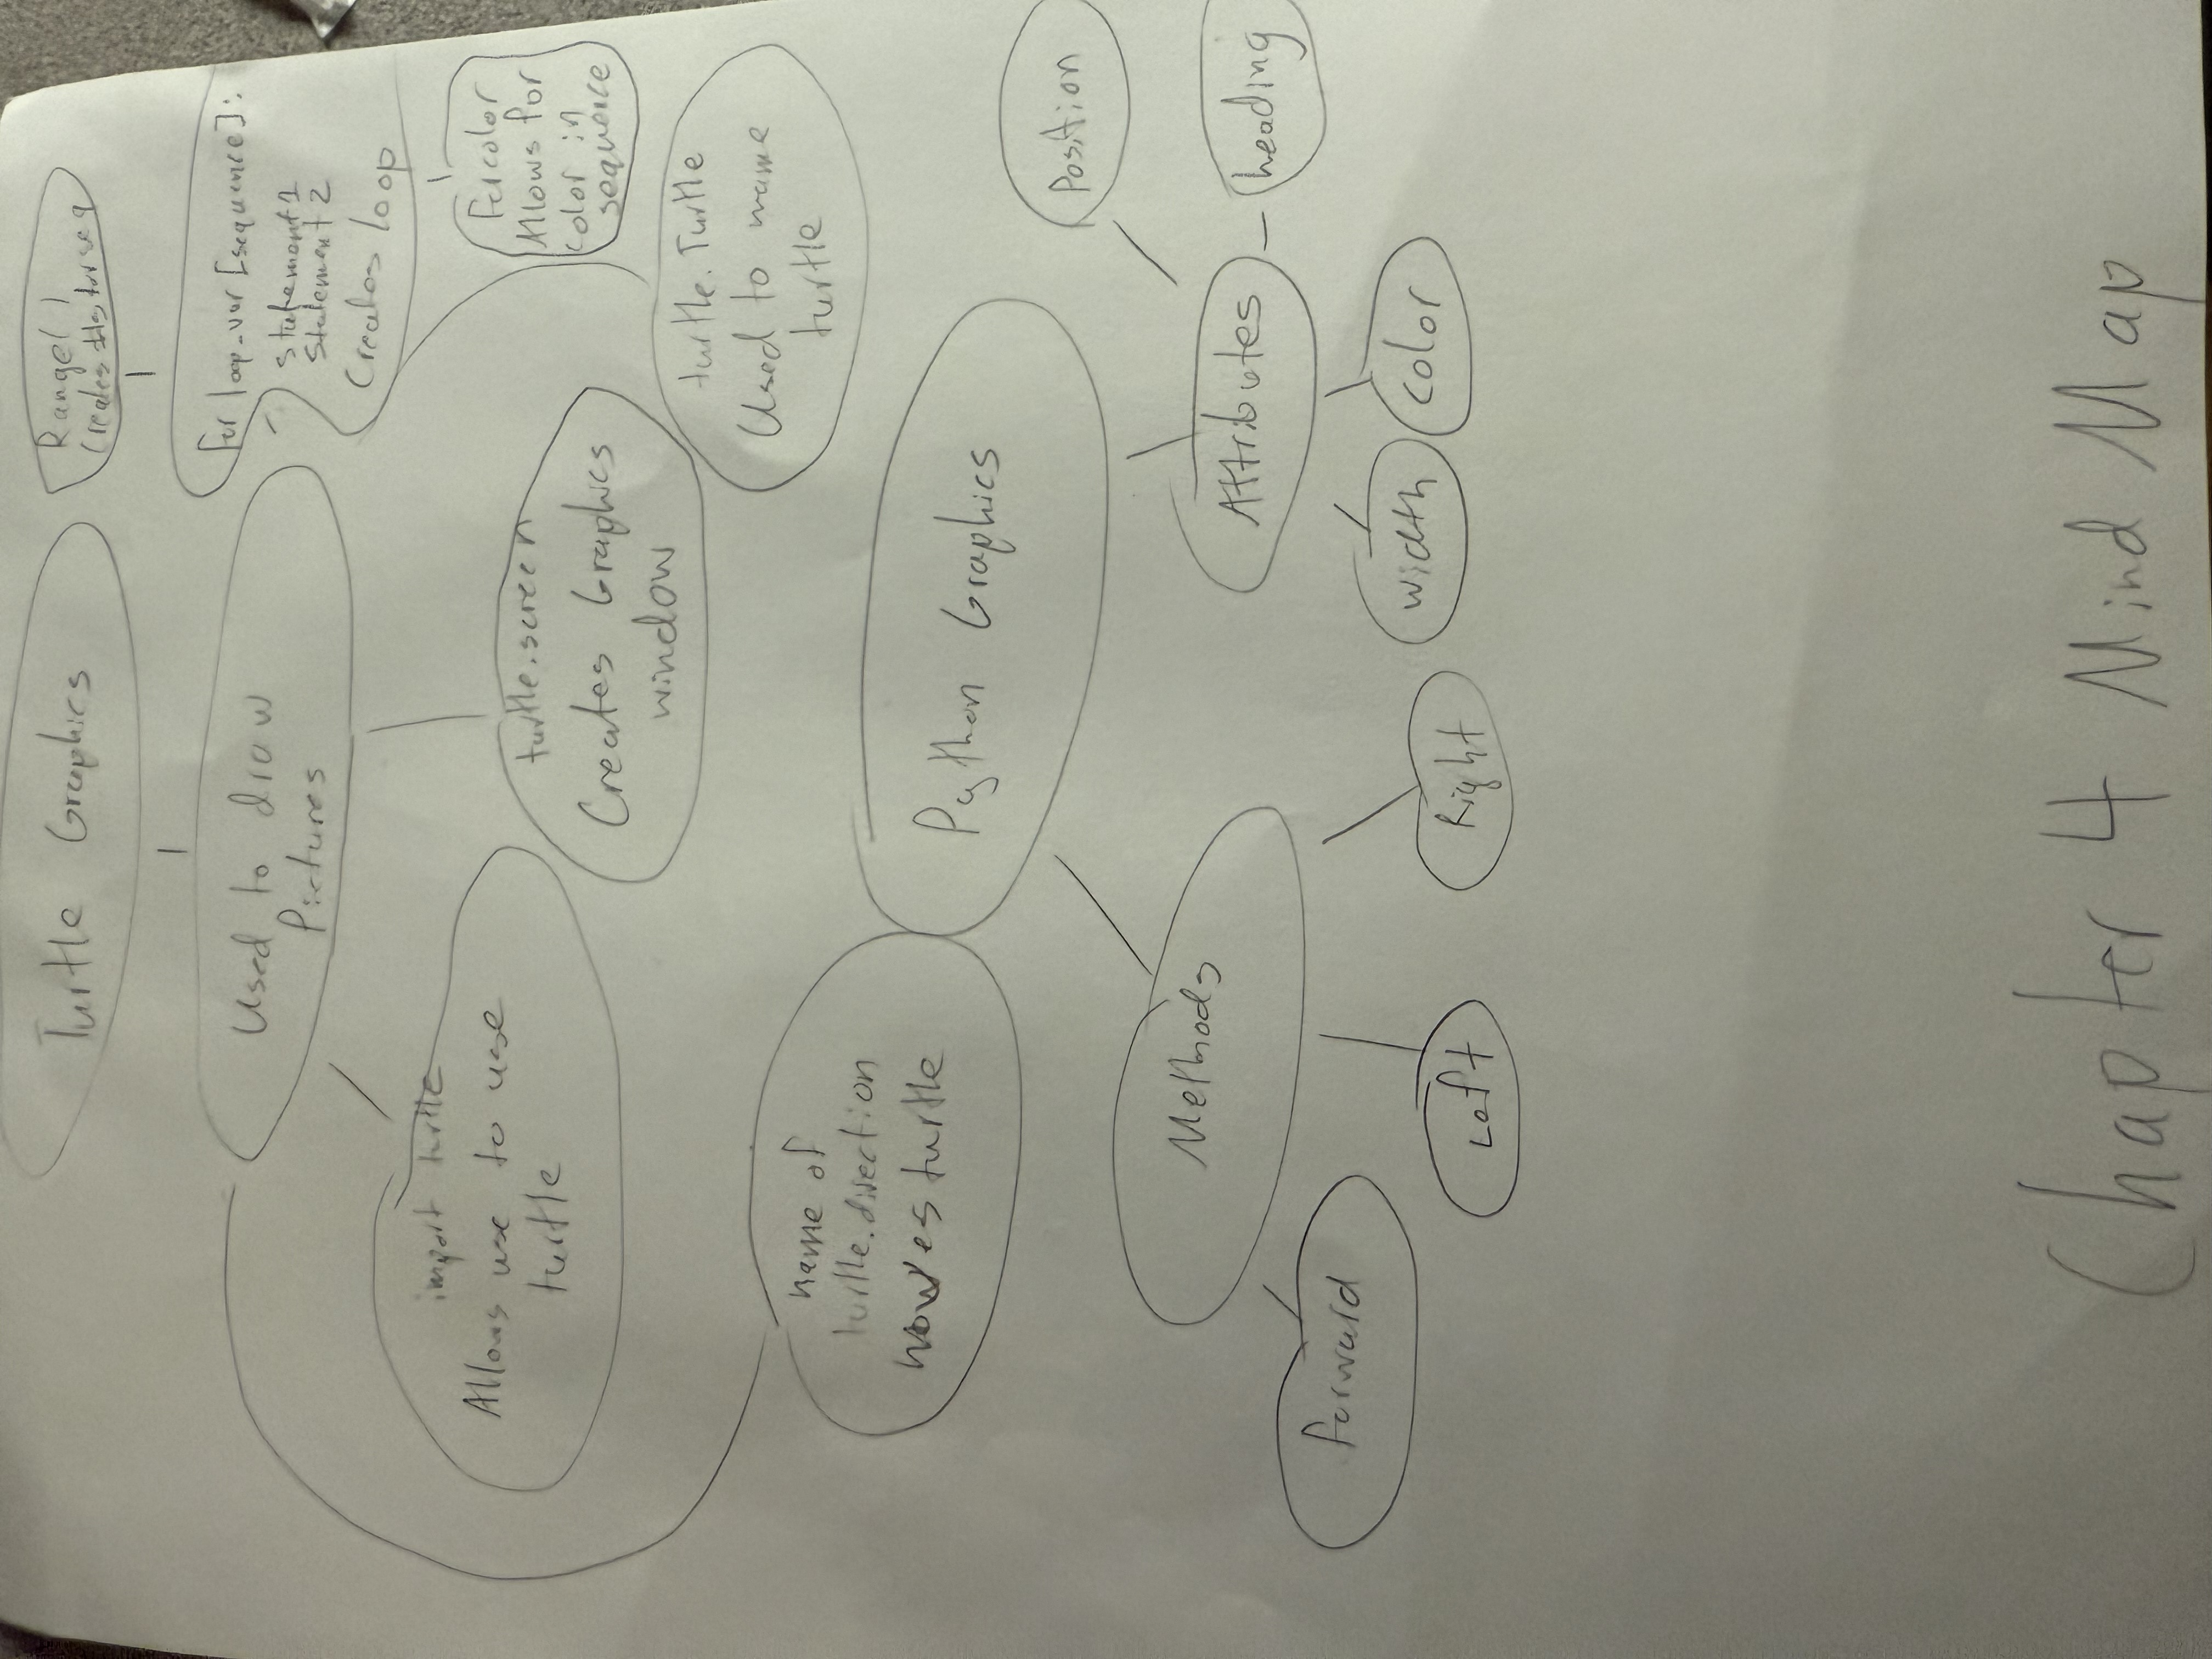 Turtle Graphics
Range( )
Creates #s for seq
Used to draw
Pictures
for loop_var [sequence]:
statement 1
Statement 2
Creates loop
import turtle
Allows use to use
turtle
turtle.screen
Creates Graphics
window
Forcolor
Allows for
color in
sequence
turtle.Turtle
Used to name
turtle
name of
turtle.direction
moves turtle
Python Graphics
Position
Methods
Attributes
heading
forward
Left
Right
width
color
Chapter 4 Mind Map